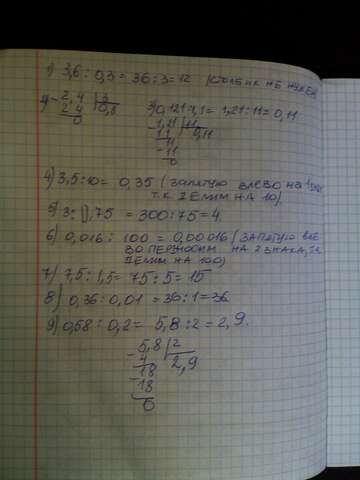 1) 3,6 : 0,3 = 36 : 3 = 12 (столбик не нужен)
2) 2,4 | 3
- 2 4 | 0,8
0
3) 0,121 : 1,1 = 1,21 : 11 = 0,11
- 1,21 | 11
11 | 0,11
11
- 11
0
4) 3,5 : 10 = 0,35 (запятую влево на 1
т.к делим на 10)
5) 3 : 0,75 = 300 : 75 = 4
6) 0,016 : 100 = 0,00016 (запятую вле
во переносим на 2 знака, т.к
делим на 100)
7) 7,5 : 1,5 = 75 : 5 = 15
8) 0,36 : 0,01 = 36 : 1 = 36
9) 0,58 : 0,2 = 5,8 : 2 = 2,9.
- 5,8 | 2
4 | 2,9
- 18
18
0